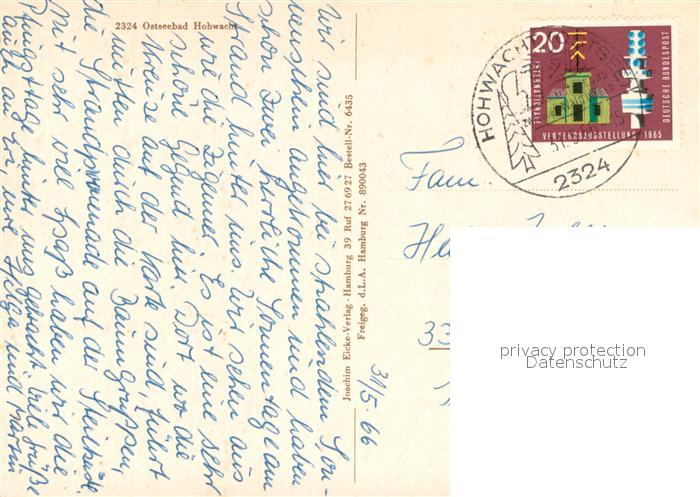 2324 Ostseebad Hohwacht
Wir sind hier bei strahlendem Son-
nenschein angekommen und haben
schon zwei herrliche Sonnentage am
Strand hinter uns. Wir sehen aus
wie die Zigeuner. Es ist eine sehr
schöne Gegend hier. Dort wo die
Kreise auf der Karte sind, führt
mitten durch die Baumgruppen,
die Strandpromenade auf der Steilküste.
Mit sehr viel Spaß haben wir die
Pfingsttage hinter uns gebracht. Viele Grüße
auch an
eure Helga und
Joachim Eicke-Verlag · Hamburg 39 Ruf 27 69 27 Bestell-Nr. 6435
Freigeg. d. L.A. Hamburg Nr. 890043
31/5. 66
HOHWACHT
2324
20
INTERNATIONALE
VERKEHRSAUSSTELLUNG 1965
DEUTSCHE BUNDESPOST
Fam.
33
privacy protection
Datenschutz